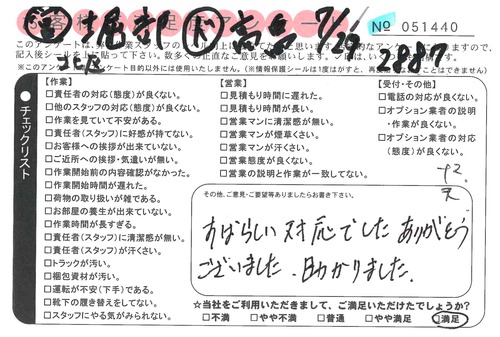 堀部 ド 高島 7/29
北区
お客様満足度アンケート
No 051440
2887
記入後シールを貼ってお出し下さい。
(※このアンケートはアンケート目的以外には使用いたしません。)(※情報保護シールは1度はがすと、再度
チェックリスト
【作業】
□責任者の対応(態度)が良くない。
□他のスタッフの対応(態度)が良くない。
□作業を見ていて不安がある。
□責任者(スタッフ)に好感が持てない。
□お客様への挨拶が出来ていない。
□ご近所への挨拶・気遣いが無い。
□作業開始前の内容確認がなかった。
□作業開始時間が遅れた。
□荷物の取り扱いが雑である。
□お部屋の養生が出来ていない。
□作業時間が長すぎる。
□責任者(スタッフ)に清潔感が無い。
□責任者(スタッフ)が汗くさい。
□トラックが汚い。
□梱包資材が汚い。
□運転が不安(下手)である。
□靴下の履き替えをしてない。
□スタッフにやる気がみられない。
【営業】
□見積もり時間に遅れた。
□見積もり時間が長い。
□営業マンに清潔感が無い。
□営業マンが煙草くさい。
□営業マンが汗くさい。
□営業態度が良くない。
□営業の説明と作業が一致してない。
【受付・その他】
□電話の対応が良くない。
□オプション業者の説明
・作業が良くない。
□オプション業者の対応
(態度)が良くない。
その他、ご意見・ご要望等ありましたらお書き下さい。
すばらしい対応でした ありがとう
ございました。助かりました。
☆当社をご利用いただきまして、ご満足いただけたでしょうか?
□不満 □やや不満 □普通 □やや満足 □満足